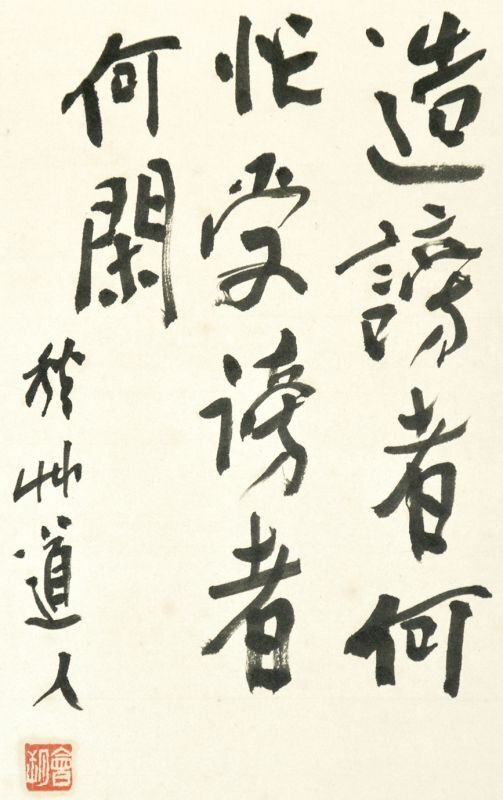 造謗者何
忙受謗者
何閑
秋艸道人
會朔